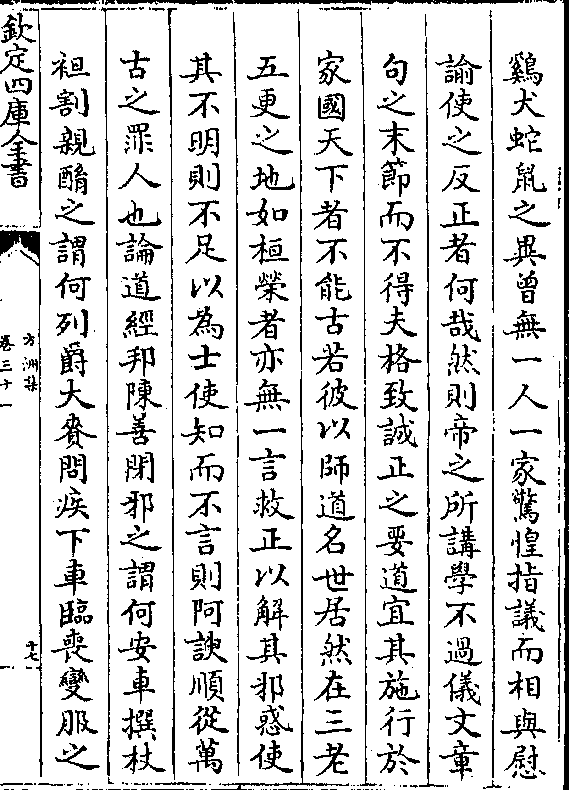 鷄犬蛇鼠之異曾無一人一家驚惶指議而相與慰
諭使之反正者何哉然則帝之所講學不過儀文章
句之末節而不得夫格致誠正之要道宜其施行於
家國天下者不能古若彼以師道名世居然在三老
五更之地如桓榮者亦無一言救正以解其邪惑使
其不明則不足以為士使知而不言則阿諛順從萬
古之罪人也論道經邦陳善閉邪之謂何安車撰杖
袒割親酳之謂何列爵大賚問疾下車臨喪變服之
欽定四庫全書
方洲集
卷三十一
十七